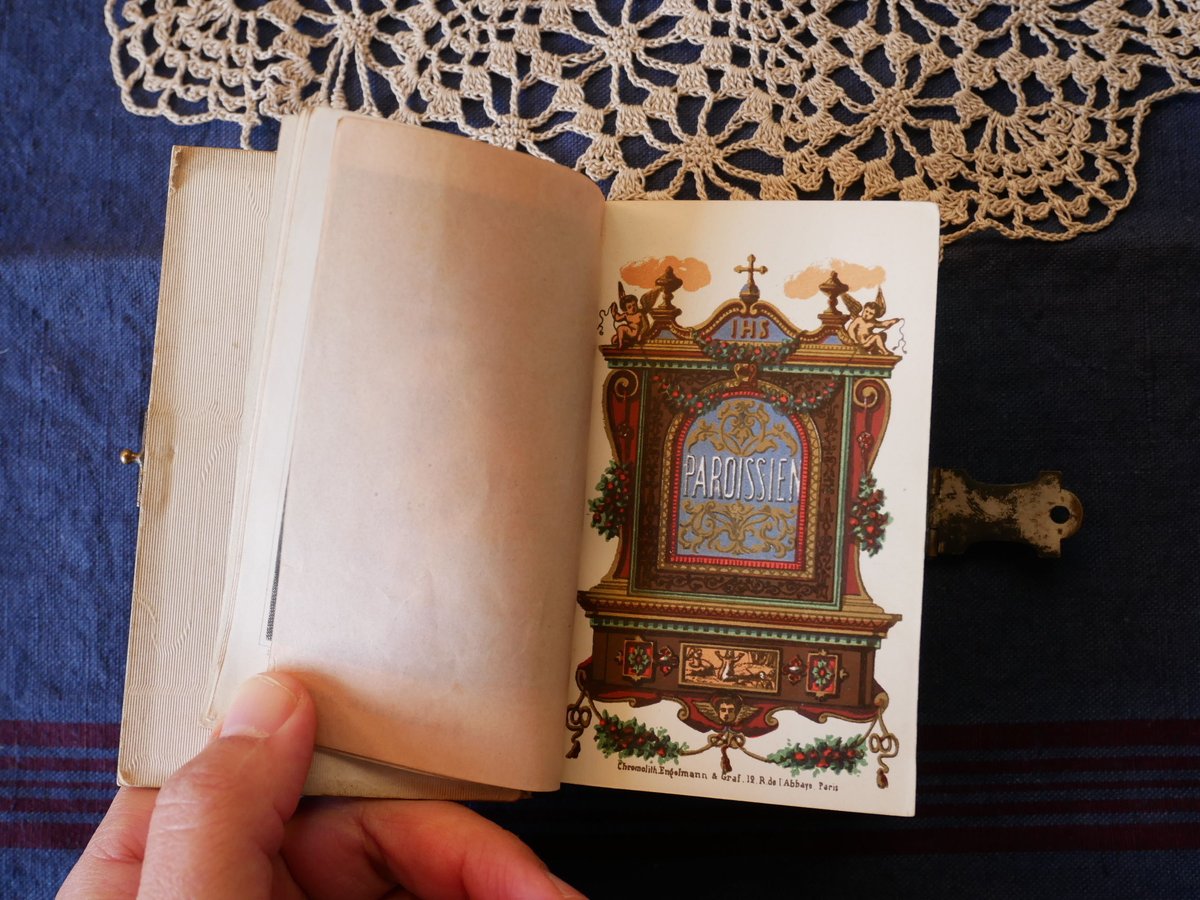 IHS
PAROISSIEN
Chromolith. Engelmann & Graf. 12. R. de l'Abbaye. Paris